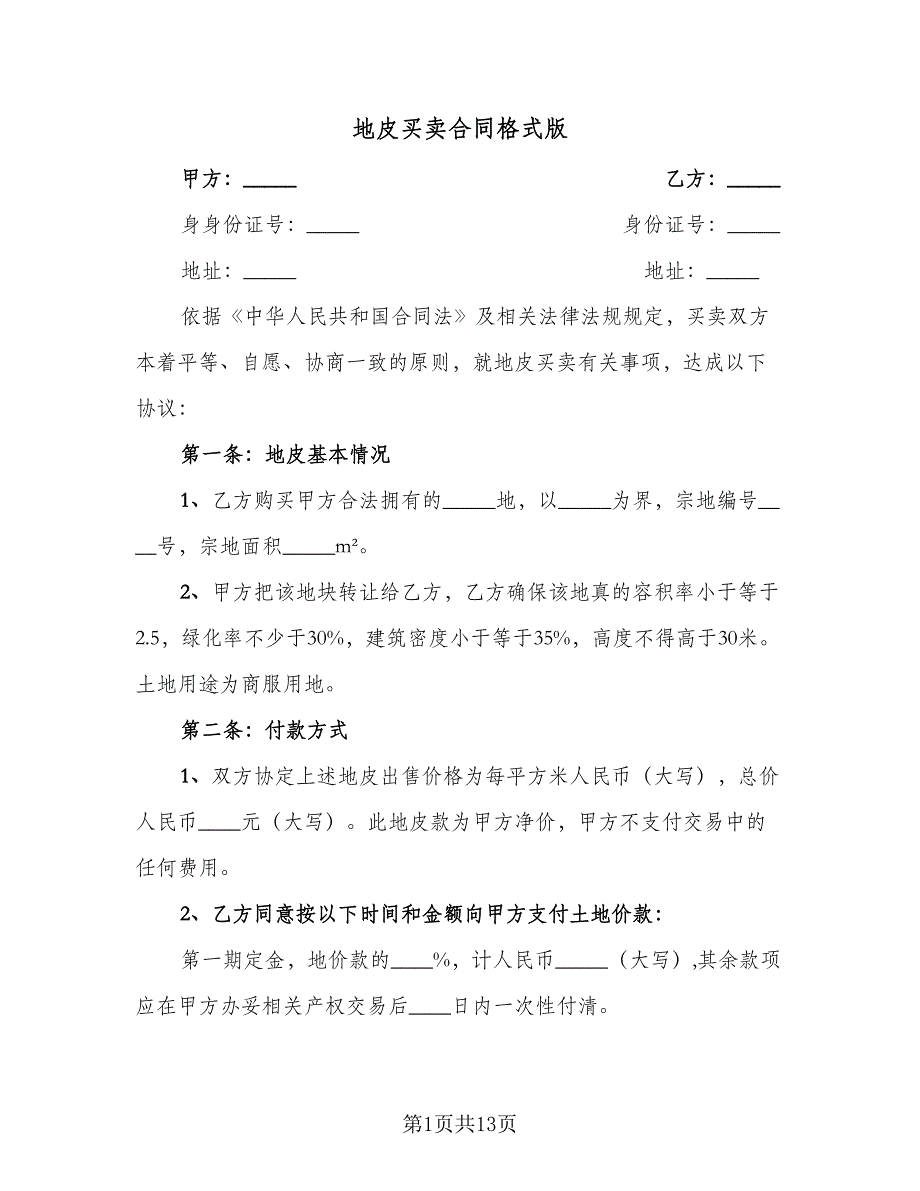 地皮买卖合同格式版
甲方：_____ 乙方：_____
身身份证号：_____ 身份证号：_____
地址：_____ 地址：_____
依据《中华人民共和国合同法》及相关法律法规规定，买卖双方
本着平等、自愿、协商一致的原则，就地皮买卖有关事项，达成以下
协议：
第一条：地皮基本情况
1、乙方购买甲方合法拥有的_____地，以_____为界，宗地编号__
__号，宗地面积_____m²。
2、甲方把该地块转让给乙方，乙方确保该地真的容积率小于等于
2.5，绿化率不少于30%，建筑密度小于等于35%，高度不得高于30米。
土地用途为商服用地。
第二条：付款方式
1、双方协定上述地皮出售价格为每平方米人民币（大写），总价
人民币____元（大写）。此地皮款为甲方净价，甲方不支付交易中的
任何费用。
2、乙方同意按以下时间和金额向甲方支付土地价款：
第一期定金，地价款的____%，计人民币_____（大写）,其余款项
应在甲方办妥相关产权交易后____日内一次性付清。
第1页共13页